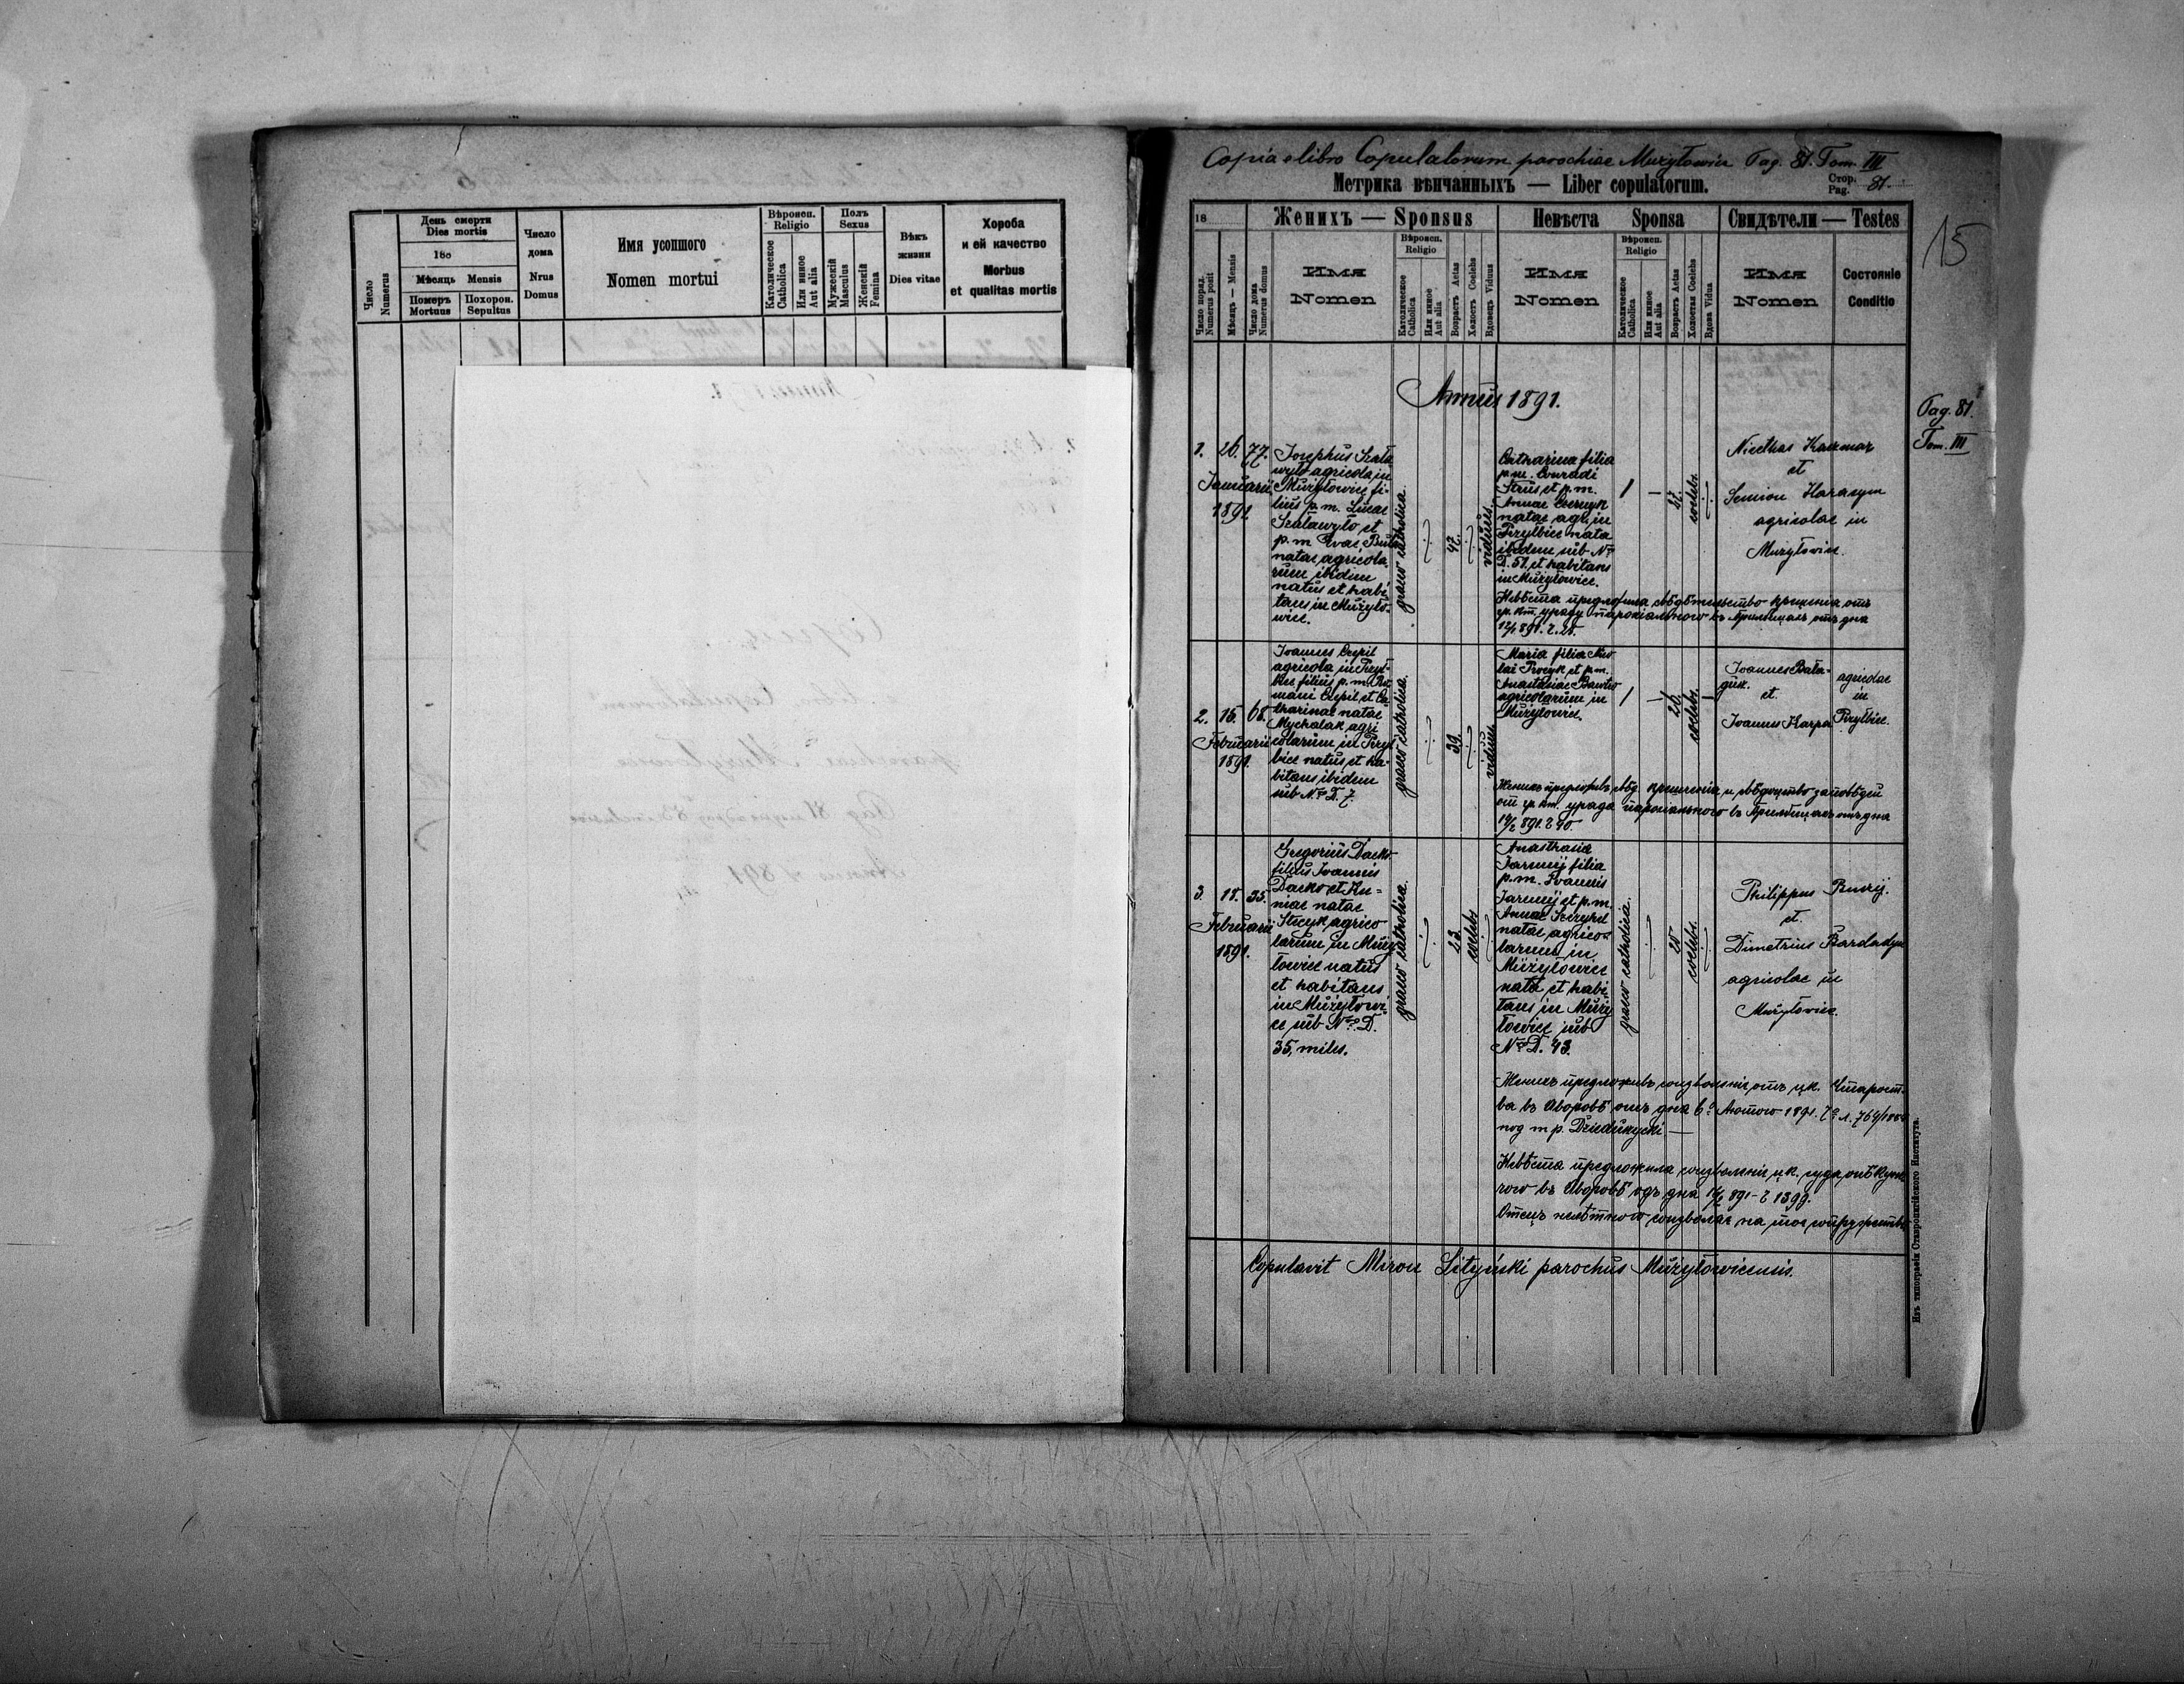 День смерти
Dies mortis
188
Мѣсяць Mensis
Померъ
Mortuus
Похорон.
Sepultus
Число
Numerus
Число
дома
Nrus
Domus
Имя усопшого
Nomen mortui
Вѣроисп.
Religio
Католическое
Catholica
Или инное
Aut alia
Полъ
Sexus
Мужескій
Masculus
Женскій
Femina
Вѣкъ
жизни
Dies vitae
Хороба
и ей качество
Morbus
et qualitas mortis
Copia e libro Copulatorum parochiae Mużyłowice Pag. 81. Tom. III
Метрика вѣнчанныхъ — Liber copulatorum.
Стор.
Pag. 81.
15
18
Женихъ — Sponsus
Невѣста Sponsa
Свидѣтели — Testes
Число поряд.
Numerus posit
Мѣсяць — Mensis
Число дома
Numerus domus
Имя
Nomen
Вѣроисп.
Religio
Католическое
Catholica
Или инное
Aut alia
Возрастъ Aetas
Холостъ Coelebs
Вдовецъ Viduus
Имя
Nomen
Вѣроисп.
Religio
Католическое
Catholica
Или инное
Aut alia
Возрастъ Aetas
Холостая Coelebs
Вдова Vidua
Имя
Nomen
Состояніе
Conditio
Annus 1891.
Pag. 81.
Tom. III
1. 26. 77.
Januarii
1891
Josephus Szała
wyło agricola in
Mużyłowice fi-
lius p.m. Lucae
Szaławyło et
p.m. Evae
natae agricola
rum ibidem
natus et habi
tans in Mużyło-
wice.
graeco catholica.
42.
viduus.
Catharina filia
p.m. Conradi
Strus et p.m.
Annae
natae agr. in
Przyłbice nata
ibidem sub Nro
D. 51. et habitans
in Mużyłowice.
1
—
coelebs.
Nicethas Kaczmar
et
Semion Harasym
agricolae in
Mużyłowice.
Невѣста предложила свѣдѣтельство крещенія отъ
гр. кт. уряду парохіального въ Прилбицахъ отъ дня
2. 15. 68.
Februarii
1891.
Joannes
agricola in Przył-
bice filius p.m. Ro
mani et Ca
tharinae natae
Mychalak agri
colarum in Przył
bice natus et ha-
bitans ibidem
sub Nro D. 7.
graeco catholica.
39.
viduus
Maria filia Nico
lai Procyk et p.m.
Anastasiae
agricolarum in
Mużyłowice.
1
—
26.
coelebs.
—
Joannes Bała-
guk.
et
Joannes Karpa
agricolae
in
Przyłbice.
Женихъ предложивъ свѣд. крещенія и свѣдоцтво заповѣдей
отъ гр. кт. уряда парохіального въ Прилбицахъ отъ дня
3. 15. 35.
Februarii
1891.
Gregorius Dacko
filius Joannis
Dacko et An-
niae natae
Stecyk agrico
larum in Muży
łowice natus
et habitans
in Mużyłowi
ce sub Nro D.
35, miles.
graeco catholica.
23.
coelebs
Anasthasia
Jaremij filia
p.m. Joannis
Jaremij et p.m.
Annae
natae agrico-
larum in
Mużyłowice
nata et habi
tans in Muży
łowice sub
Nro D. 43.
graeco catholica.
20
coelebs.
Philippus Burij.
et.
Dimetrius Bardadyn
agricolae in
Mużyłowice.
Женихъ предложивъ соизволеніе отъ ц.к. Старост-
ва въ Яворовѣ отъ дня 6º Лютого 1891.
под т. р. Dzieduszycki —
Невѣста предложила соизволеніе ц.к. суда опѣкунч
ого въ Яворовѣ одъ дня 14/2 891 – Z 1399.
Отецъ соизволяе на тое супружество
Copulavit Miron Lityński parochus Mużyłovicensis.
Изъ типографіи Ставропигійского Института.